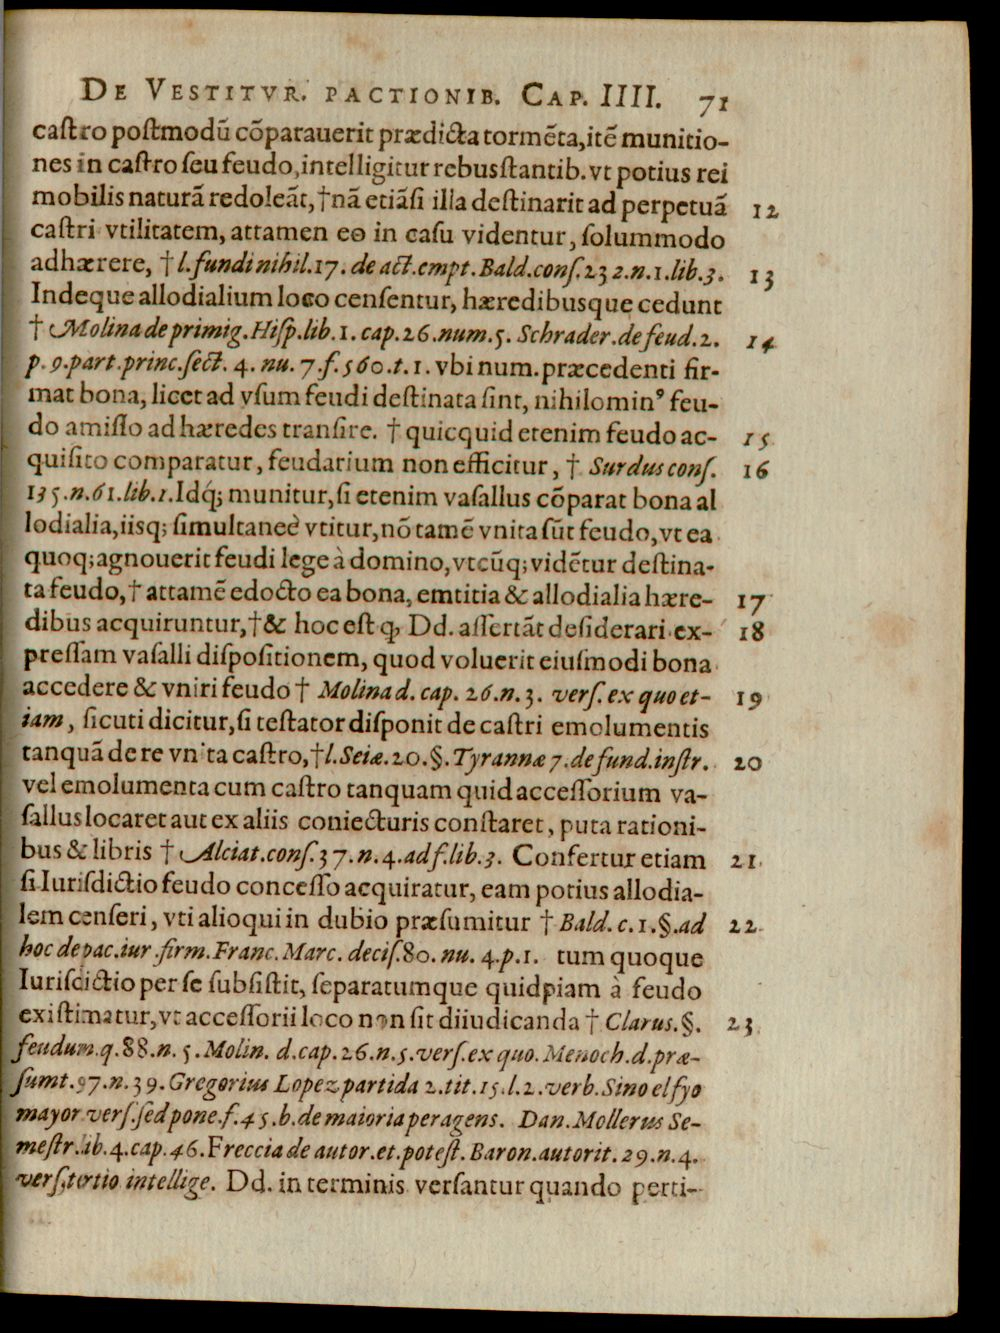 DE VESTITVR. PACTIONIB. CAP. IIII. 71
castro postmodũ cõparauerit prædicta tormẽta, itẽ munitio-
nes in castro seu feudo, intelligitur rebus stantib. vt potius rei
mobilis naturã redoleãt, † nã etiãsi illa destinarit ad perpetuã 12
castri vtilitatem, attamen eo in casu videntur, solummodo
adhærere, † l. fundi nihil. 17. de act. empt. Bald. cons. 232. n. 1. lib. 3. 13
Indeque allodialium loco censentur, hæredibusque cedunt
† Molina de primig. Hisp. lib. 1. cap. 26. num. 5. Schrader. de feud. 2. 14
p. 9. part. princ. sect. 4. nu. 7. f. 560. t. 1. vbi num. præcedenti fir-
mat bona, licet ad vsum feudi destinata sint, nihilominꝰ feu-
do amisso ad hæredes transire. † quicquid etenim feudo ac- 15
quisito comparatur, feudarium non efficitur, † Surdus cons. 16
135. n. 61. lib. 1. Idq́; munitur, si etenim vasallus cõparat bona al
lodialia, iisq; simultaneè vtitur, nõ tamẽ vnita sũt feudo, vt ea
quoq; agnouerit feudi lege à domino, vtcũq; vidẽtur destina-
ta feudo, † attamẽ edocto ea bona, emtitia & allodialia hære- 17
dibus acquiruntur, † & hoc est ꝙ Dd. assertãt desiderari ex- 18
pressam vasalli dispositionem, quod voluerit eiusmodi bona
accedere & vniri feudo † Molina d. cap. 26. n. 3. vers. ex quo et- 19
iam, sicuti dicitur, si testator disponit de castri emolumentis
tanquã de re vnita castro, † l. Seiæ. 20. §. Tyrannæ 7. de fund. instr. 20
vel emolumenta cum castro tanquam quid accessorium va-
sallus locaret aut ex aliis coniecturis constaret, puta rationi-
bus & libris † Alciat. cons. 37. n. 4. ad f. lib. 3. Confertur etiam 21
si Iurisdictio feudo concesso acquiratur, eam potius allodia-
lem censeri, vti alioqui in dubio præsumitur † Bald. c. 1. §. ad 22
hoc de pac. iur. firm. Franc. Marc. decis. 80. nu. 4. p. 1. tum quoque
Iurisdictio per se subsistit, separatumque quidpiam à feudo
existimatur, vt accessorii loco non sit diiudicanda † Clarus. §. 23
feudum. q. 88. n. 5. Molin. d. cap. 26. n. 5. vers. ex quo. Menoch. d. præ-
sumt. 97. n. 39. Gregorius Lopez partida 2. tit. 15. l. 2. verb. Sino el fyo
mayor vers. sed pone. f. 45. b. de maioria peragens. Dan. Mollerus Se-
mestr. lib. 4. cap. 46. Freccia de autor. et. potest. Baron. autorit. 29. n. 4.
vers. tertio intellige. Dd. in terminis versantur quando perti-